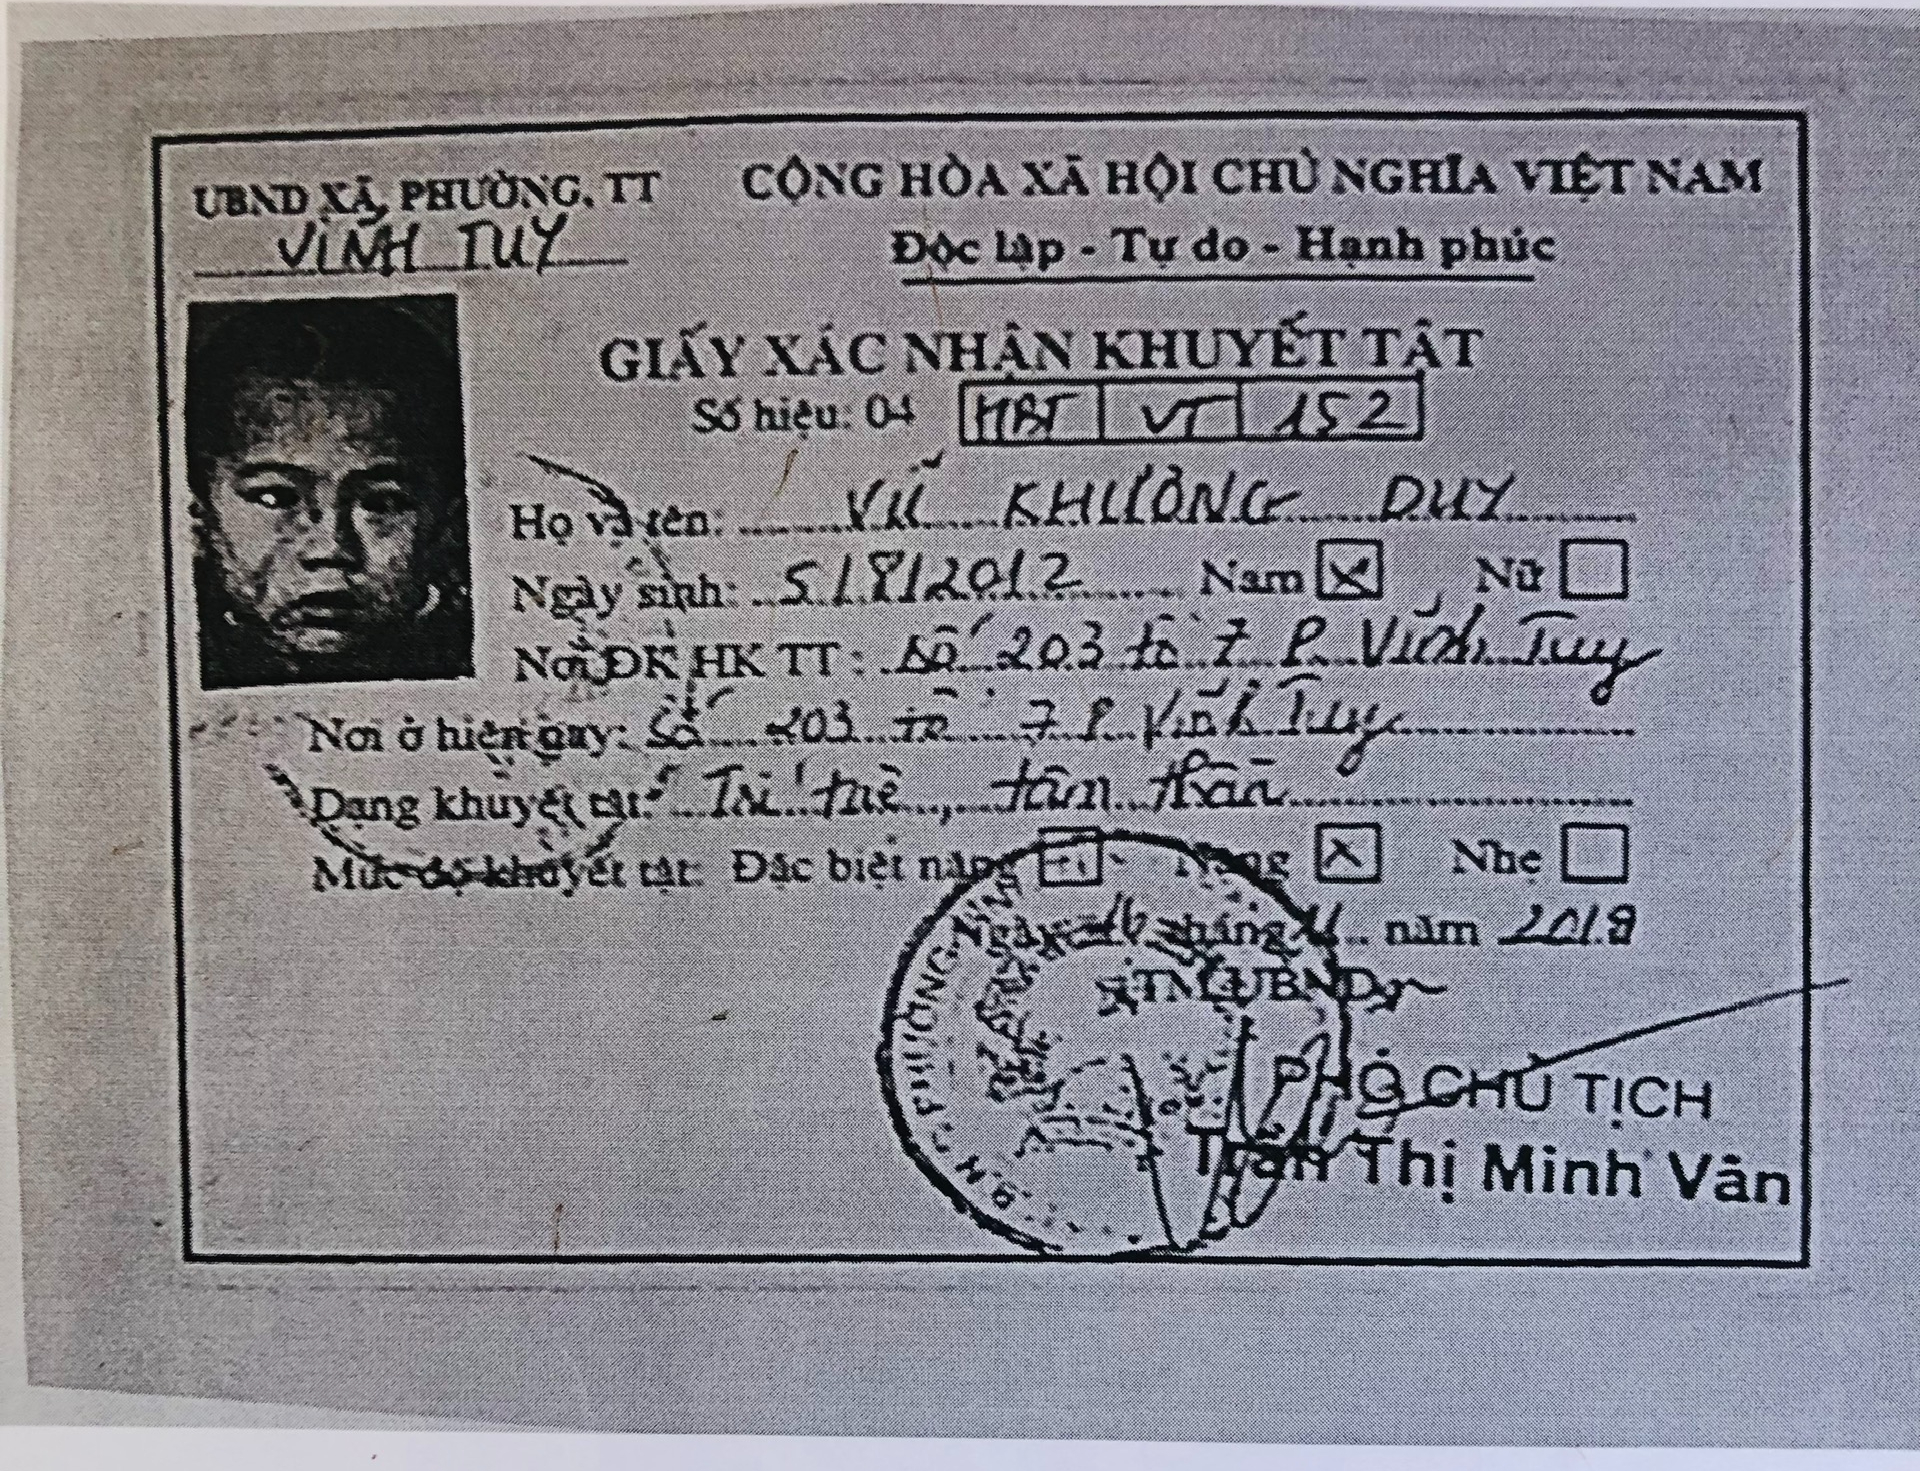 UBND XÃ, PHƯỜNG, TT
VĨNH TUY
CỘNG HÒA XÃ HỘI CHỦ NGHĨA VIỆT NAM
Độc lập - Tự do - Hạnh phúc
GIẤY XÁC NHẬN KHUYẾT TẬT
Số hiệu: 04 HBT VT 152
Họ và tên: VŨ KHƯƠNG DUY
Ngày sinh: 5/8/2012 Nam ☒ Nữ ☐
Nơi ĐK HK TT: Số 203 tổ 7 P. Vĩnh Tuy
Nơi ở hiện nay: Số 203 tổ 7 P. Vĩnh Tuy
Dạng khuyết tật: Trí tuệ, tâm thần
Mức độ khuyết tật: Đặc biệt nặng ☐ Nặng ☒ Nhẹ ☐
Ngày 16 tháng năm 2018
TM. UBND
PHÓ CHỦ TỊCH
Trần Thị Minh Vân